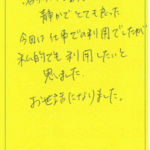 静かでとても良かった
今回は仕事での利用でしたが
私的でも利用したいと
思いました。
お世話になりました。